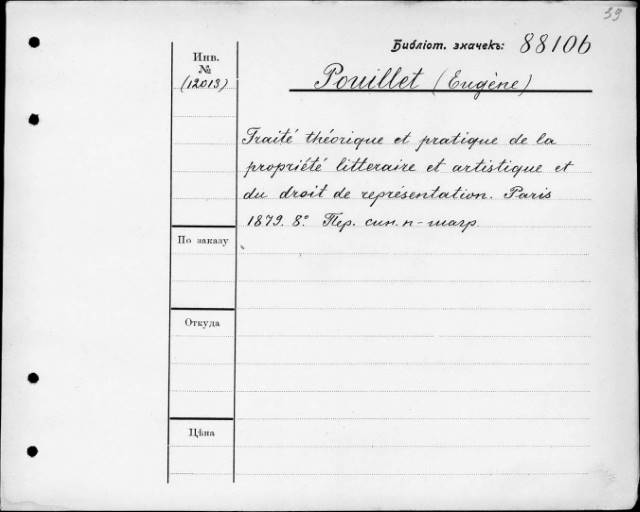 39
Библіот. значекъ: 88106
Инв.
№
(12013)
Pouillet (Eugène)
Traité théorique et pratique de la
propriété litteraire et artistique et
du droit de représentation. Paris
1879. 8° Пер. син. п-шагр.
По заказу
Откуда
Цѣна